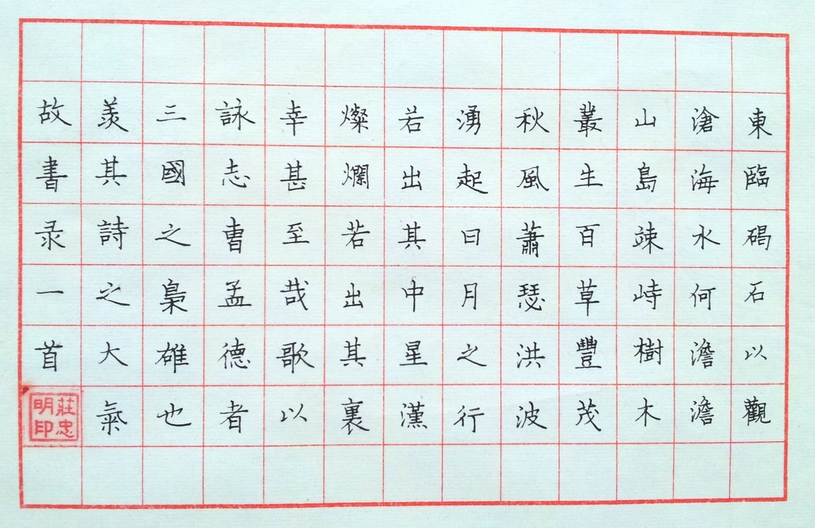 東臨碣石以觀
滄海水何澹澹
山島竦峙樹木
叢生百草豐茂
秋風蕭瑟洪波
湧起日月之行
若出其中星漢
燦爛若出其裏
幸甚至哉歌以
詠志曹孟德者
三國之梟雄也
羨其詩之大氣
故書录一首
莊忠明印